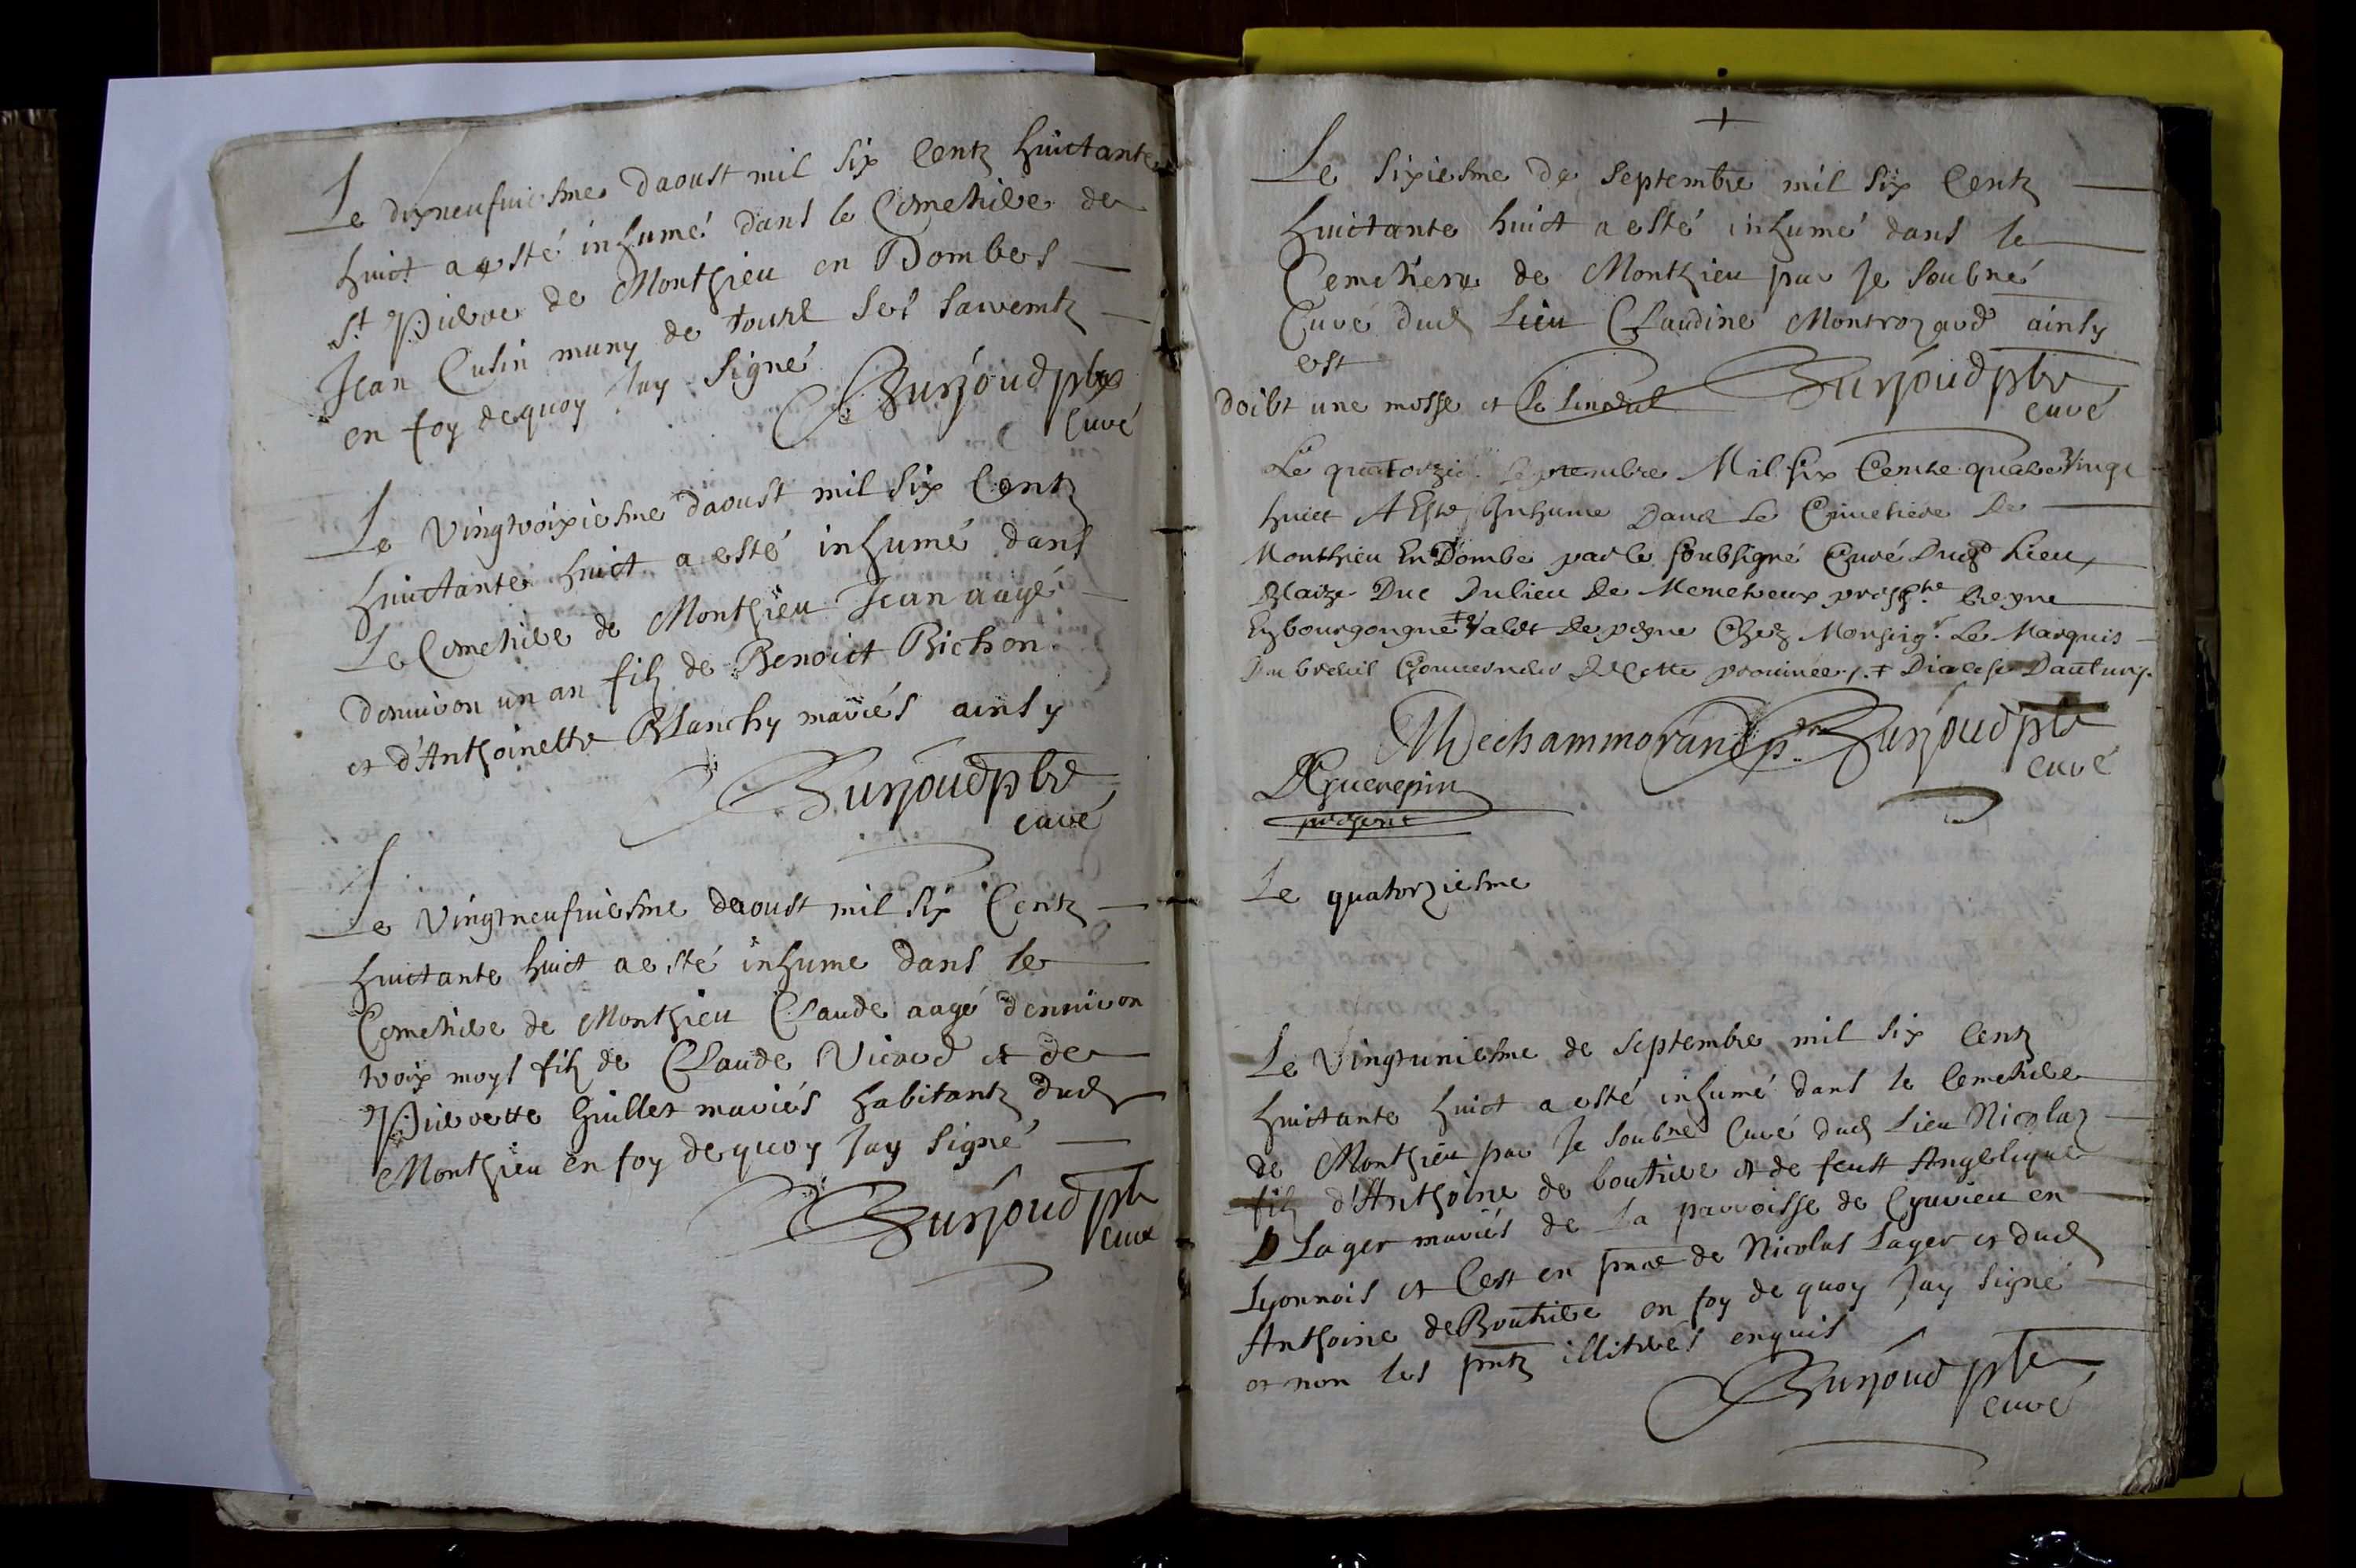 Le dixneufuiesme daoust mil six Centz huictante
huict a esté inhumé dans le Cemetiere de
St Pierre de Monthieu en Dombes
Jean Cusin muny de tous ses sacrementz
en foy dequoy Jay signé
Burjoud pbre
curé
Le vingtroixiesme daoust mil six Centz
huictante huict a esté inhumé dans
Le Cemetiere de Monthieu Jean aagé
denuiron un an filz de Benoict Bichon
et d'Anthoinette Blanchy mariés ainsy
Burjoud pbre
curé
Le vingtneufuiesme daoust mil six Centz
huictante huict a esté inhume dans le
Cemetiere de Monthieu Claude aagé denuiron
troix moys filz de Claude Vicard et de
Pierrette Guillet mariés habitantz dud
Monthieu en foy dequoy Jay signé
Burjoud pbre
curé
Le sixiesme de septembre mil six Centz
huictante huict a esté inhumé dans le
Cemetiere de Monthieu par Je soubné
Curé dud Lieu Claudine Montrozard ainsy
est
Burjoud pbre
curé
doibt une messe et le
Le quatorzie septembre Mil six Cents quatre vingt
huict A Este Inhume Dans Le Cimetiere De
Monthieu En Dombe par le soubsigné Curé Dud Lieu
Blaize Duc Du lieu de
En bourgongne + Valet de Chez Monseigr Le Marquis
Du breuil Gouuerneur De Cette prouince /. + Diocese Dautun
Dechammorand Burjoud pbre
curé
DGuerepin
present
Le quatorziesme
Le vingtuniesme de septembre mil six Centz
huictante huict a esté inhumé dans le Cemetiere
de Monthieu par Je soubné Curé dud Lieu Nicolaz
filz d'Anthoine de boutiere et de feust Angelique
Lager mariés de La parroisse de en
Lyonnois et Cest en pnce de Nicolas Lager et dud
Anthoine de Boutiere en foy de quoy Jay signé
et non les pntz illiteres enquis
Burjoud pbre
curé